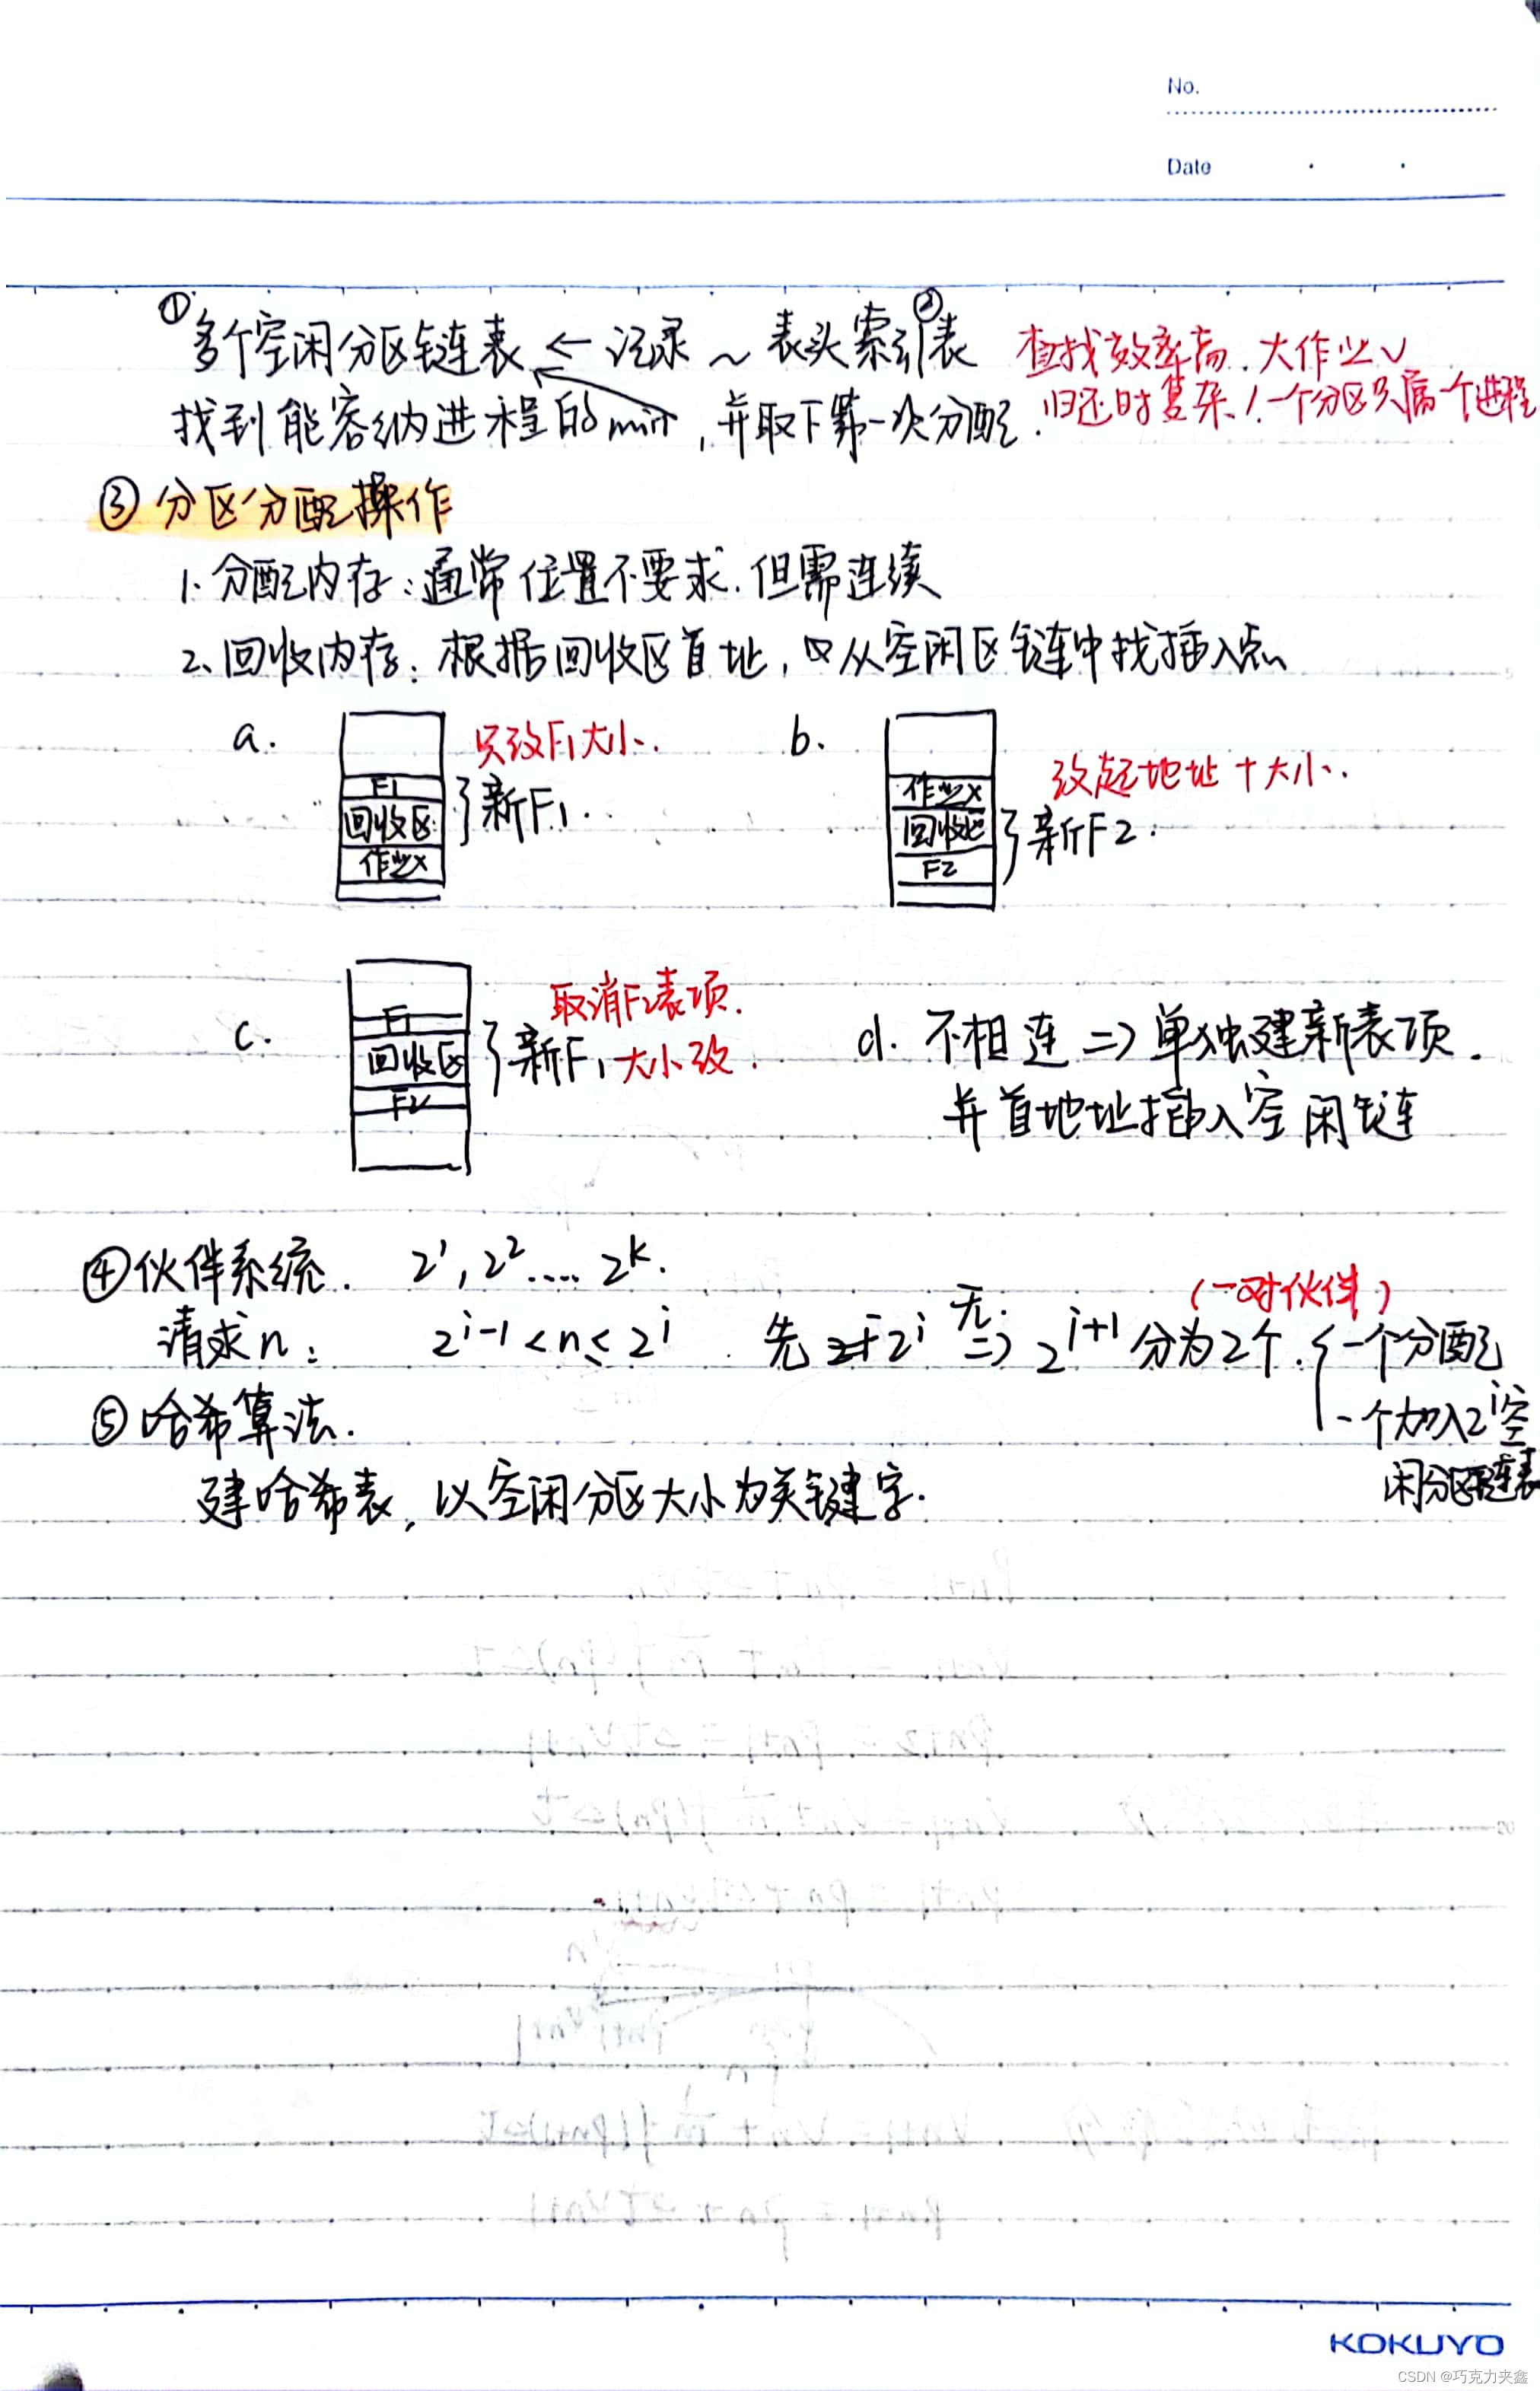 No.
Date
①多个空闲分区链表 ← 记录 ~ 表头索引表② 查找效率高.大作业√
找到能容纳进程的min,并取下第一次分配. 归还时复杂/一个分区只属一个进程
③ 分区分配操作
1. 分配内存:通常位置不要求.但需连续
2. 回收内存:根据回收区首址,从空闲区链中找插入点
a. 只改F1大小.
F1
回收区
作业X
新F1.
b. 改起地址+大小.
作业X
回收区
F2
新F2.
c. 取消F2表项.
F1
回收区
F2
新F1 大小改.
d. 不相连 => 单独建新表项.
并首地址插入空闲链
④伙伴系统. 2¹,2².... 2ᵏ.
(一对伙伴)
请求n: 2ⁱ⁻¹<n≤2ⁱ 先找2ⁱ 无.=> 2ⁱ⁺¹分为2个.{一个分配
一个加入2ⁱ空
闲分区链表
⑤哈希算法.
建哈希表,以空闲分区大小为关键字.
KOKUYO
CSDN @巧克力夹鑫